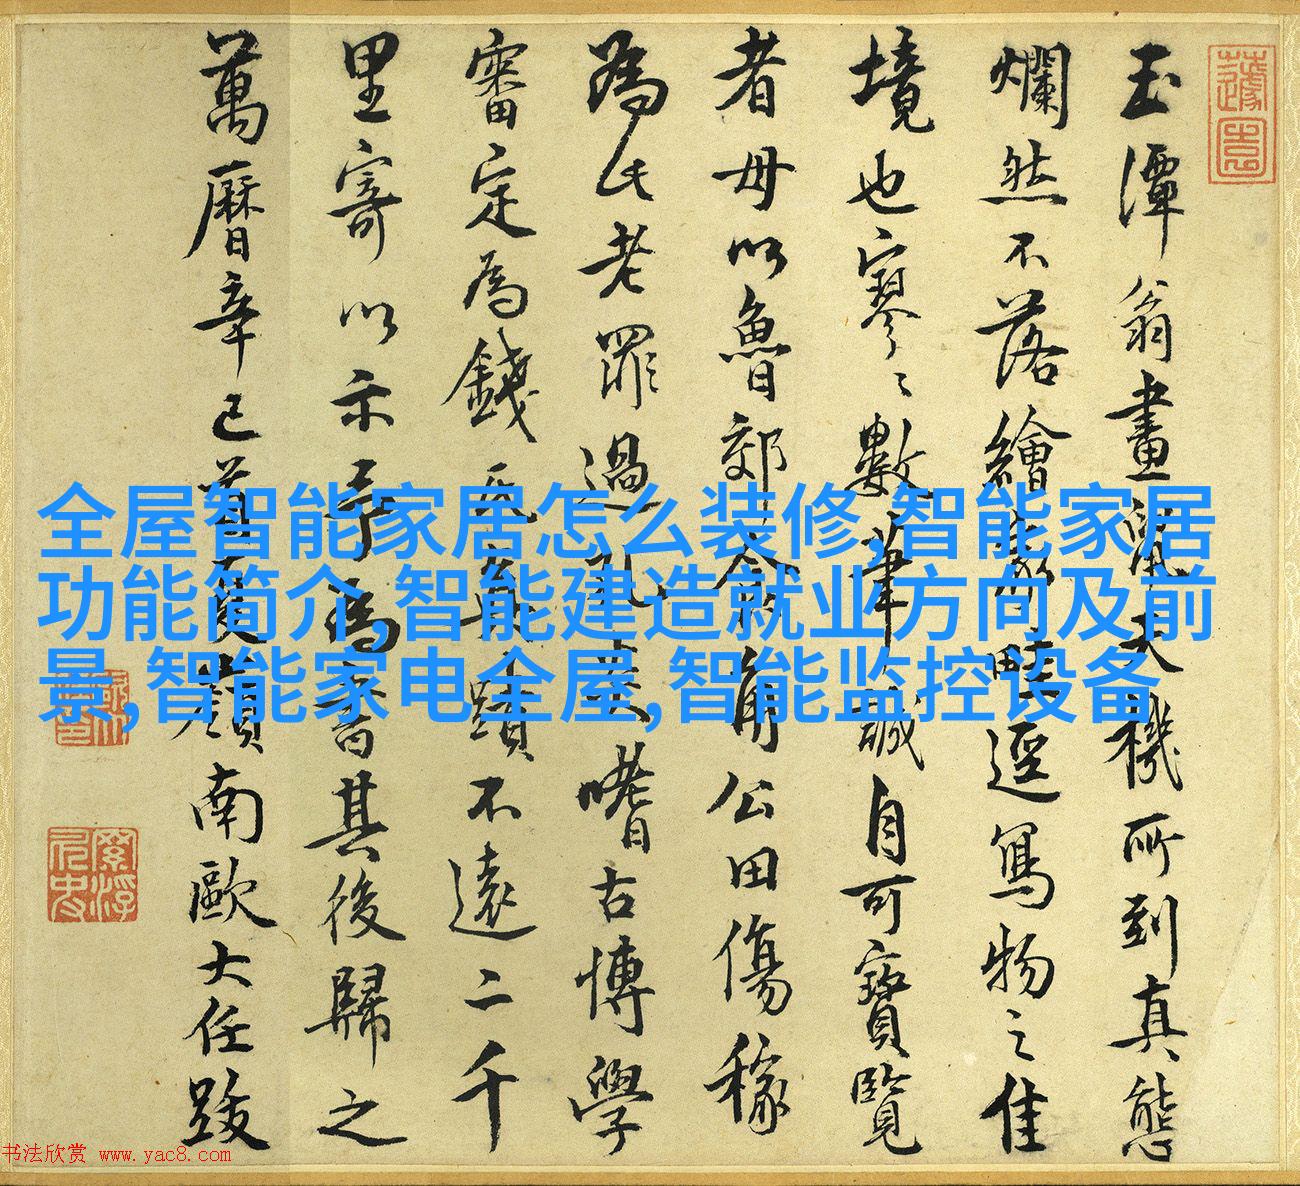 玉潭翁畫鼠天機所到真態
爛然不落繪事畦逕寫物之佳
境也寥〻數筆誠自可寶覽
者毋以魯郊食角公田傷稼
為氏老罪過孔莢嗜古博學
審定為錢氏真蹟不遠二千
里寄以示予為書其後歸之
萬曆辛巳首夏嶺南歐大任跋
全屋智能家居怎么装修,智能家居
功能简介,智能建造就业方向及前
景,智能家电全屋,智能监控设备
书法欣赏 www.yac8.com